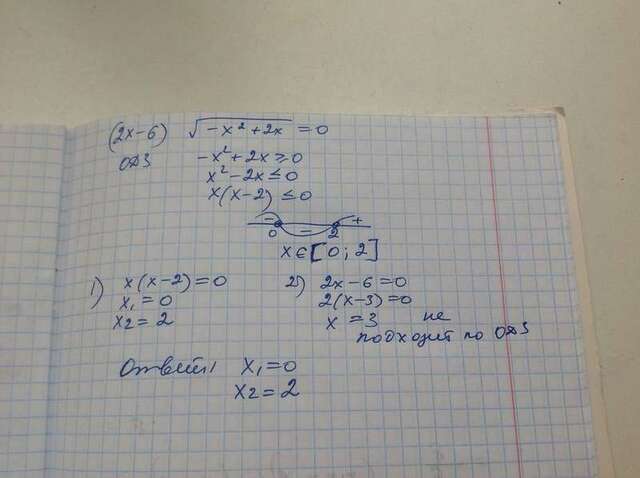 (2x-6) √(-x² + 2x) = 0
ОДЗ -x² + 2x ≥ 0
x² - 2x ≤ 0
x(x-2) ≤ 0
- - +
0 2
x ∈ [0; 2]
1) x(x-2) = 0
x₁ = 0
x₂ = 2
2) 2x-6 = 0
2(x-3) = 0
x = 3 не
подходит по ОДЗ
Ответ: x₁ = 0
x₂ = 2